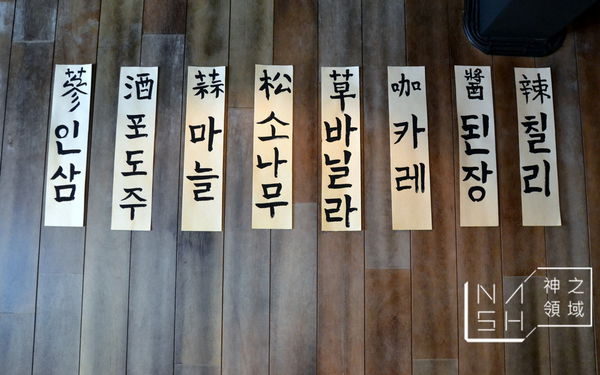 蔘인삼
酒포도주
蒜마늘
松소나무
草바닐라
咖카레
醬된장
辣칠리
NASH
神之
領域